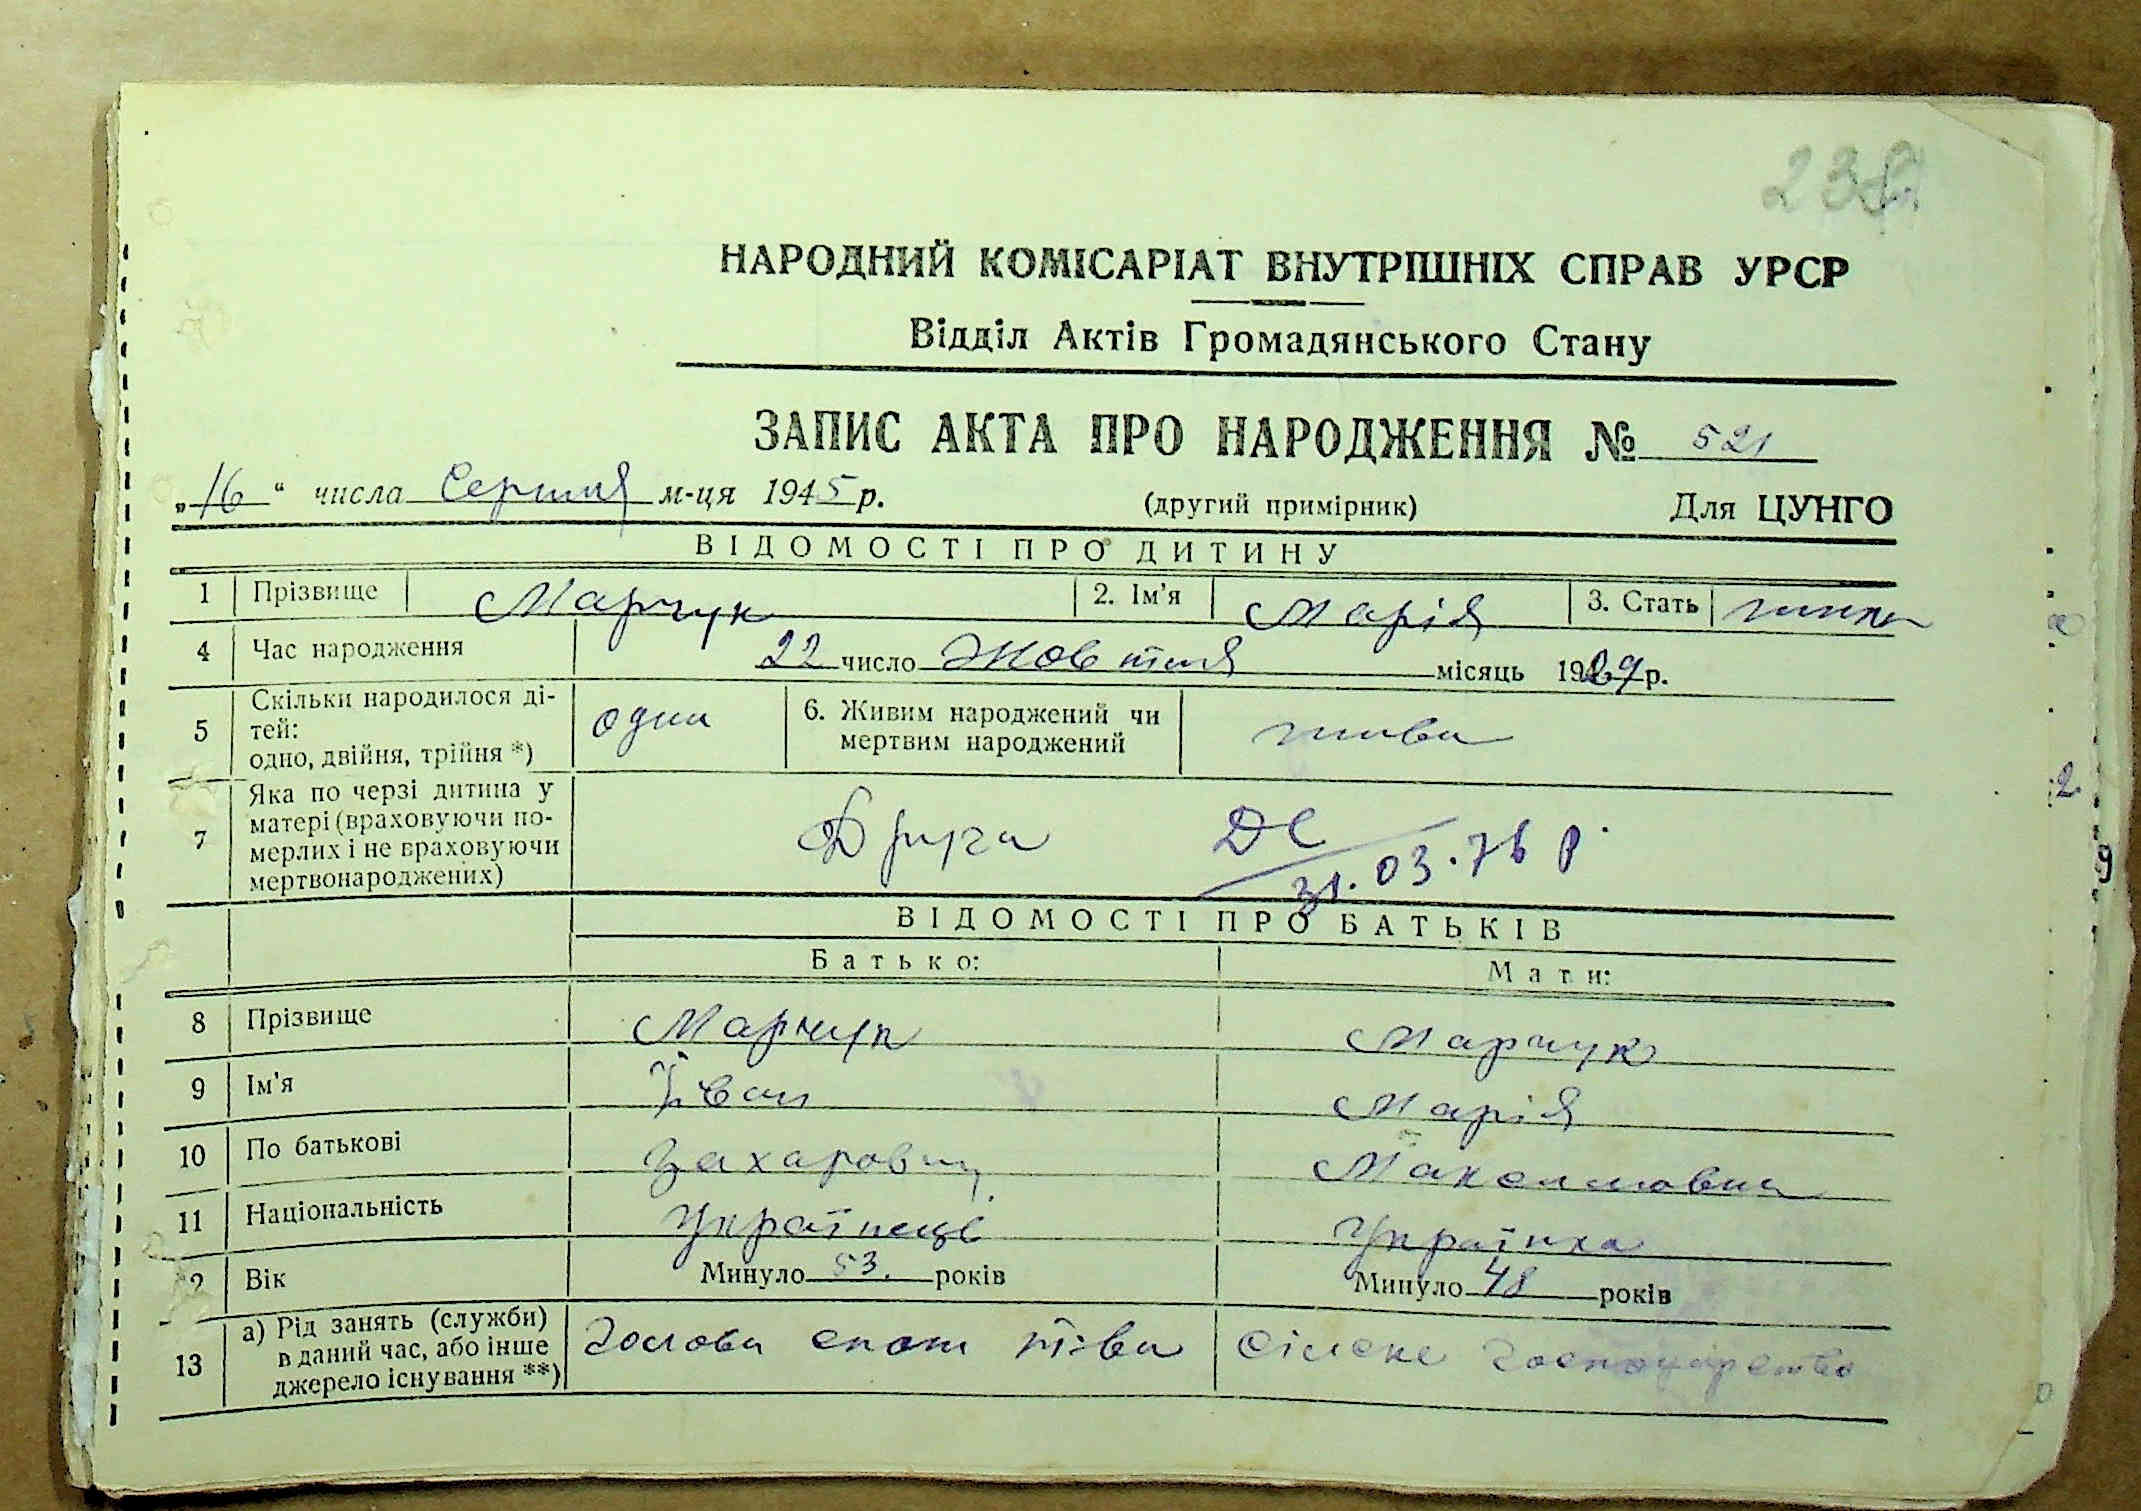 238
НАРОДНИЙ КОМІСАРІАТ ВНУТРІШНІХ СПРАВ УРСР
Відділ Актів Громадянського Стану
ЗАПИС АКТА ПРО НАРОДЖЕННЯ № 521
„16“ числа Серпня м-ця 1945 р. (другий примірник) Для ЦУНГО
ВІДОМОСТІ ПРО ДИТИНУ
1 Прізвище Марчук 2. Ім'я Марія 3. Стать
4 Час народження 22 число Жовтня місяць 1929 р.
5 Скільки народилося ді-
тей:
одно, двійня, трійня *) одна 6. Живим народжений чи
мертвим народжений жива
7 Яка по черзі дитина у
матері (враховуючи по-
мерлих і не враховуючи
мертвонароджених) Друга ДС
31.03.76 р.
ВІДОМОСТІ ПРО БАТЬКІВ
Батько: Мати:
8 Прізвище Марчук Марчук
9 Ім'я Іван Марія
10 По батькові Захарович Максимовна
11 Національність Українець Українка
2 Вік Минуло 53. років Минуло 48 років
13 а) Рід занять (служби)
в даний час, або інше
джерело існування **) Голова спож тва Сільске господарство